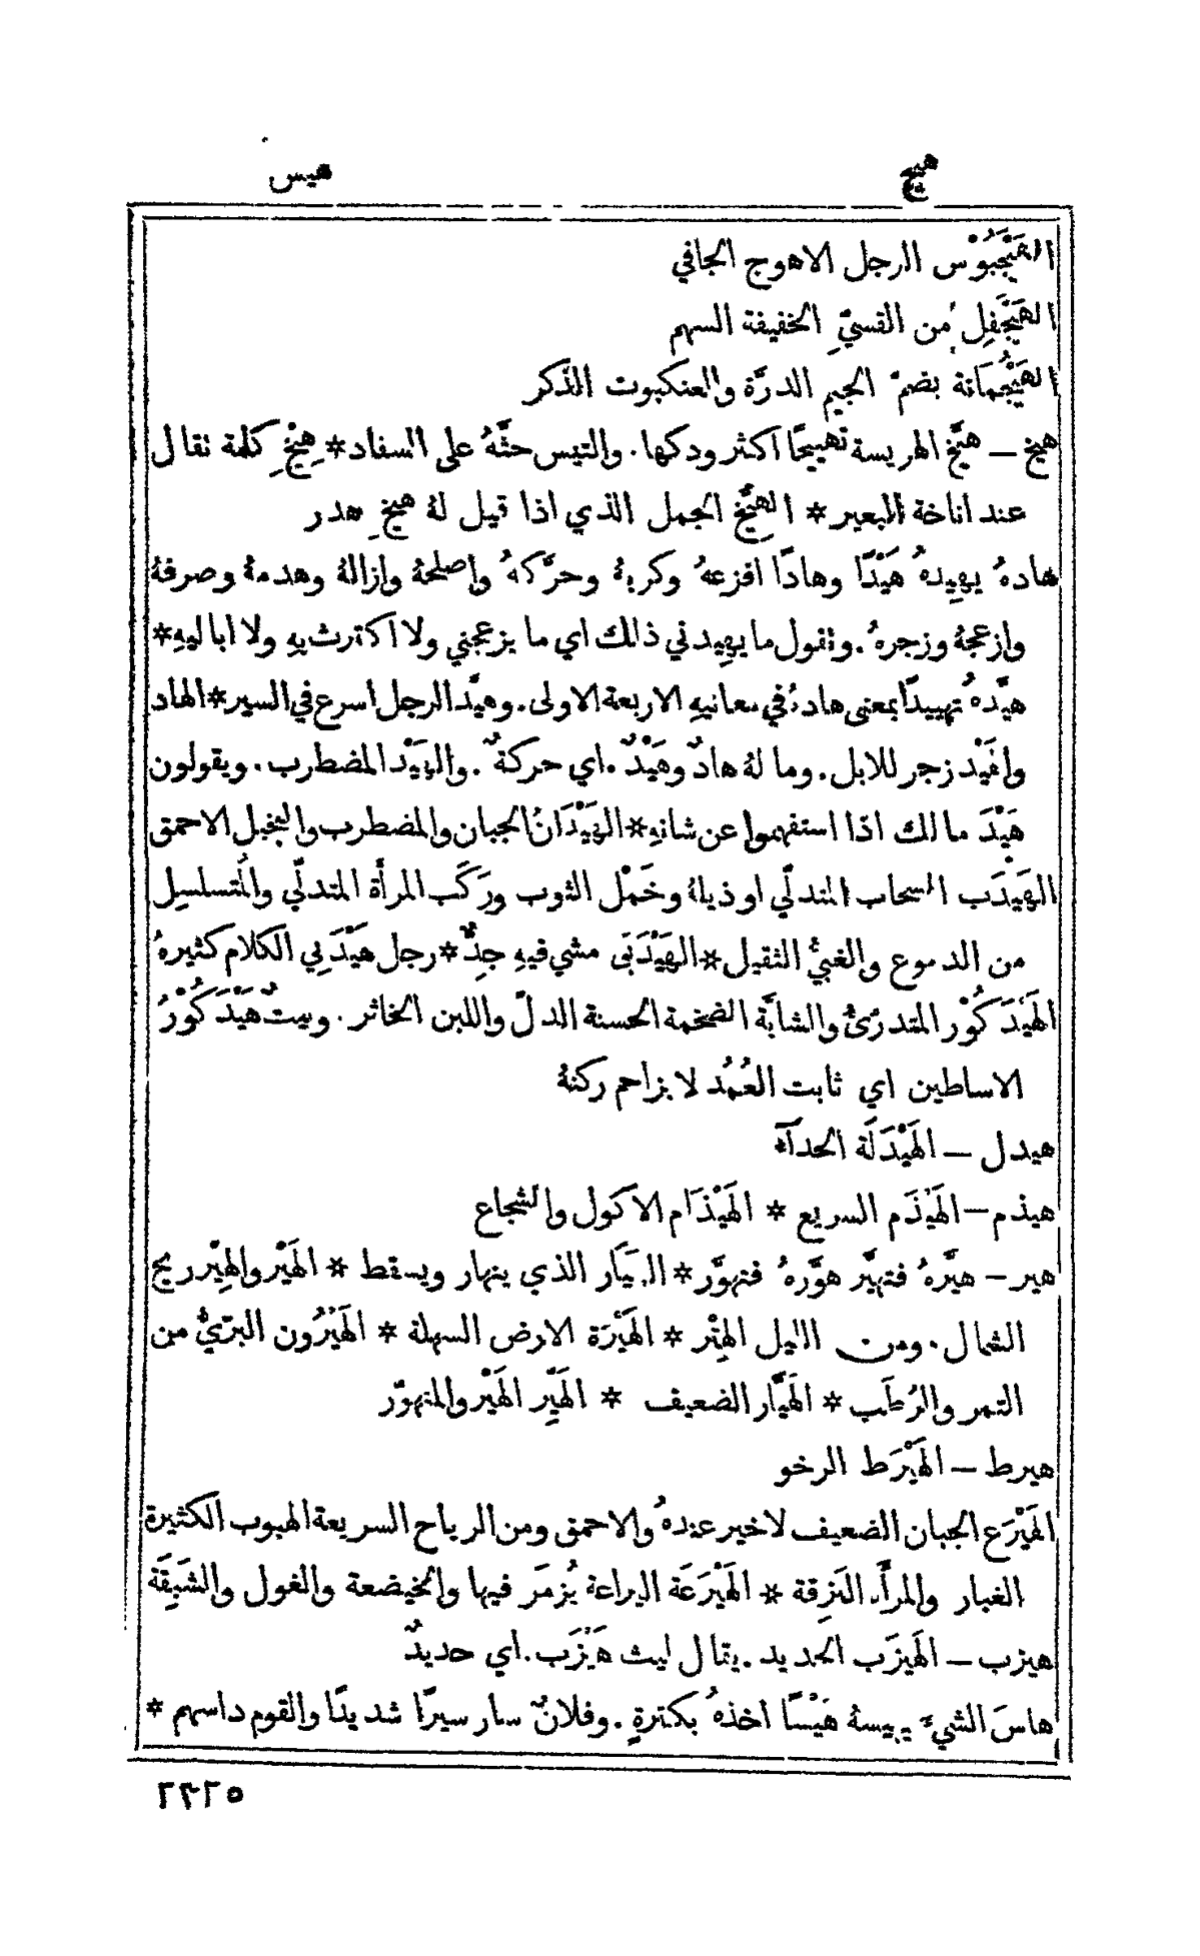 هيج
هيس
الهَيْجَبُوْس الرجل الاهوج الجافي
الهَيْجَفِل من القسيّ الخفيفة السهم
الهَيْجُمَانة بضمّ الجيم الدرَّة والعنكبوت الذكر
هيخ — هيَّخ الهريسة تهييخًا اكثر ودكها. والتيس حثَّهُ على السفاد * هِيْخِ كلمة تقال
عند اناخة البعير * الهِيَّخ الجمل الذي اذا قيل لهُ هيخِ هدر
هادهُ يهِيدهُ هَيْدًا وهادًا افزعهُ وكربهُ وحرَّكهُ وأصلحهُ وأزالهُ وهدمهُ وصرفهُ
وازعجهُ وزجرهُ. وتقول ما يهِيدني ذلك اي ما يزعجني ولا اكترث بهِ ولا اباليهِ *
هيَّدهُ تهييدًا بمعنى هادهُ في معانيهِ الاربعة الاولى. وهيَّد الرجل اسرع في السير * الهاد
والهَيْد زجر للابل. وما لهُ هادٌ وهَيْدٌ. اي حركةٌ. والهَيْد المضطرب. ويقولون
هَيْدَ ما لك اذا استفهموا عن شانهِ * الهَيْدَانُ الجبان والمضطرب والبخيل الاحمق
الهَيْدَب السحاب المتدلّي او ذيلهُ وخَمْل الثوب ورَكَب المرأة المتدلّي والمتسلسل
من الدموع والغبيُّ الثقيل * الهَيْدَبَى مشي فيهِ جِدٌّ * رجل هَيْدَبي الكلام كثيرهُ
الهَيْدَكُوْر المتدرّئُ والشابَّة الضخمة الحسنة الدلّ واللبن الخاثر. وبيتٌ هَيْدَكُوْرُ
الاساطين اي ثابت العُمُد لا يزاحم ركنهُ
هيدل — الهَيْدَلَة الحدآة
هيذم — الهَيْذَم السريع * الهَيْذَام الاكول والشجاع
هير — هيَّرهُ فتهيَّر هوَّرهُ فتهوَّر * الهَيَّار الذي ينهار ويسقط * الهَيْر والهِيْر ريح
الشمال. ومن الليل الهِتْر * الهَيْرَة الارض السهلة * الهَيْرُون البرّيُّ من
التمر والرُطَب * الهَيَّار الضعيف * الهَيّر الهَيْر والمتهوّر
هيرط — الهَيْرَط الرخو
الهَيْرَع الجبان الضعيف لا خير عندهُ والاحمق ومن الرياح السريعة الهبوب الكثيرة
الغبار والمرأة النَزِقة * الهَيْرَعَة اليراعة يُزمَر فيها والخيضعة والغول والشَبِقَة
هيزب — الهَيزَب الحديد. يقال ليث هَيْزَب. اي حديدٌ
هاسَ الشيءَ يهيسهُ هَيْسًا اخذهُ بكثرةٍ. وفلانٌ سار سيرًا شديدًا والقوم داسهم *
٢٢٢٥